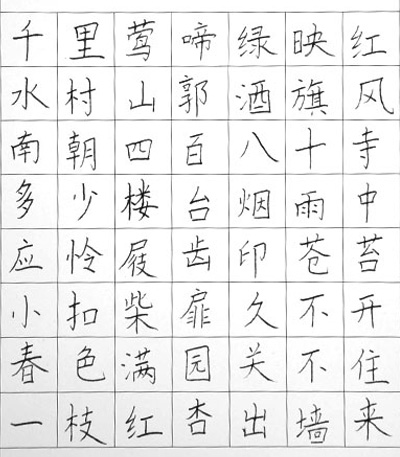 千里莺啼绿映红
水村山郭酒旗风
南朝四百八十寺
多少楼台烟雨中
应怜屐齿印苍苔
小扣柴扉久不开
春色满园关不住
一枝红杏出墙来